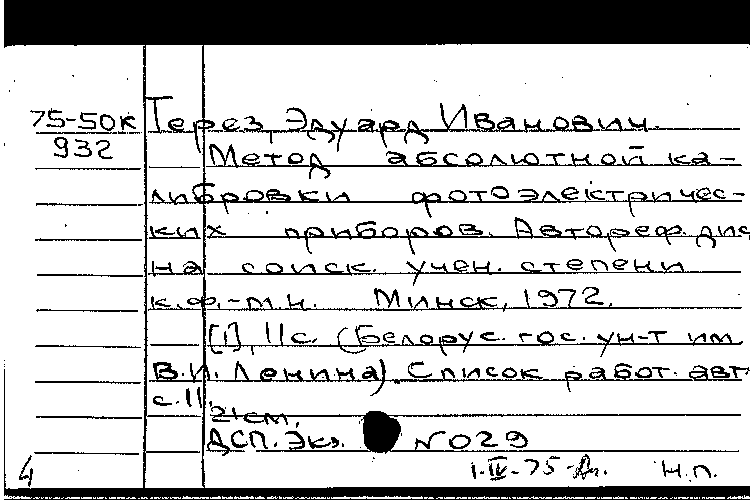 75-50к Терез, Эдуард Иванович.
932 Метод абсолютной ка-
либровки фотоэлектричес-
ких приборов. Автореф. дис
на соиск. учен. степени
к.ф.-м.н. Минск, 1972.
[1], 11с. (Белорус. гос. ун-т им
В.И. Ленина). Список работ. авт
с.11.
21см.
ДСП. Экз. №029
1-IV-75 Н.П.
4